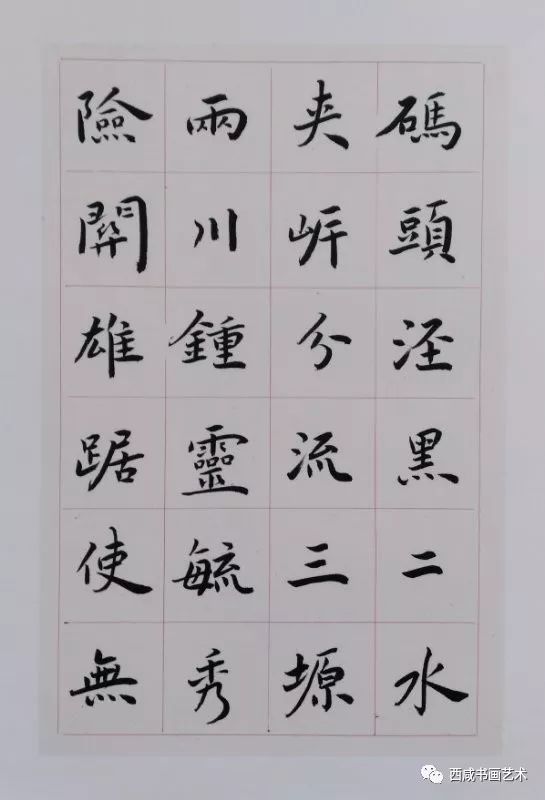 碼頭泾黑二水
夹㟁分流三塬
兩川鍾靈毓秀
險關雄踞使無
西咸书画艺术